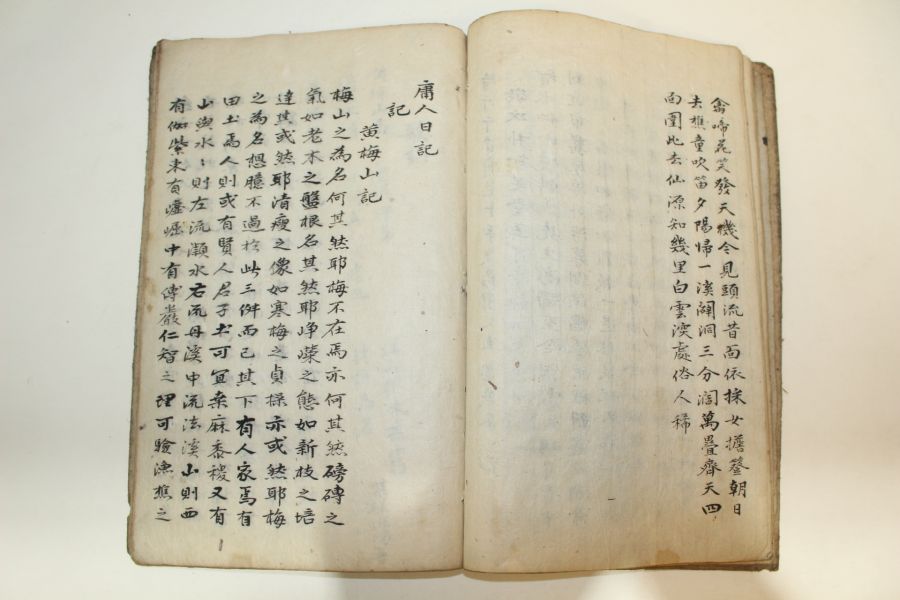 禽啼花笑發天機今見頭流昔面依採女擔簦朝日
去樵童吹笛夕陽歸一溪闢洞三分濶萬疊齊天四
面圍此去仙源知幾里白雲深處俗人稀
庸人日記
記
黄梅山記
梅山之為名何其然耶梅不在焉亦何其然磅礡之
氣如老木之盤根名其然耶崢嶸之態如新枝之培
達其或然耶清瘦之像如寒梅之貞操亦或然耶梅
之為名想臆不過於此三件而已其下有人家焉有
田土焉人則或有賢人君子土可宜桑麻黍稷又有
山與水水則左流灝水右流丹溪中流法溪山則西
有伽紫東有崛中有傅巖仁智之理可驗漁樵之